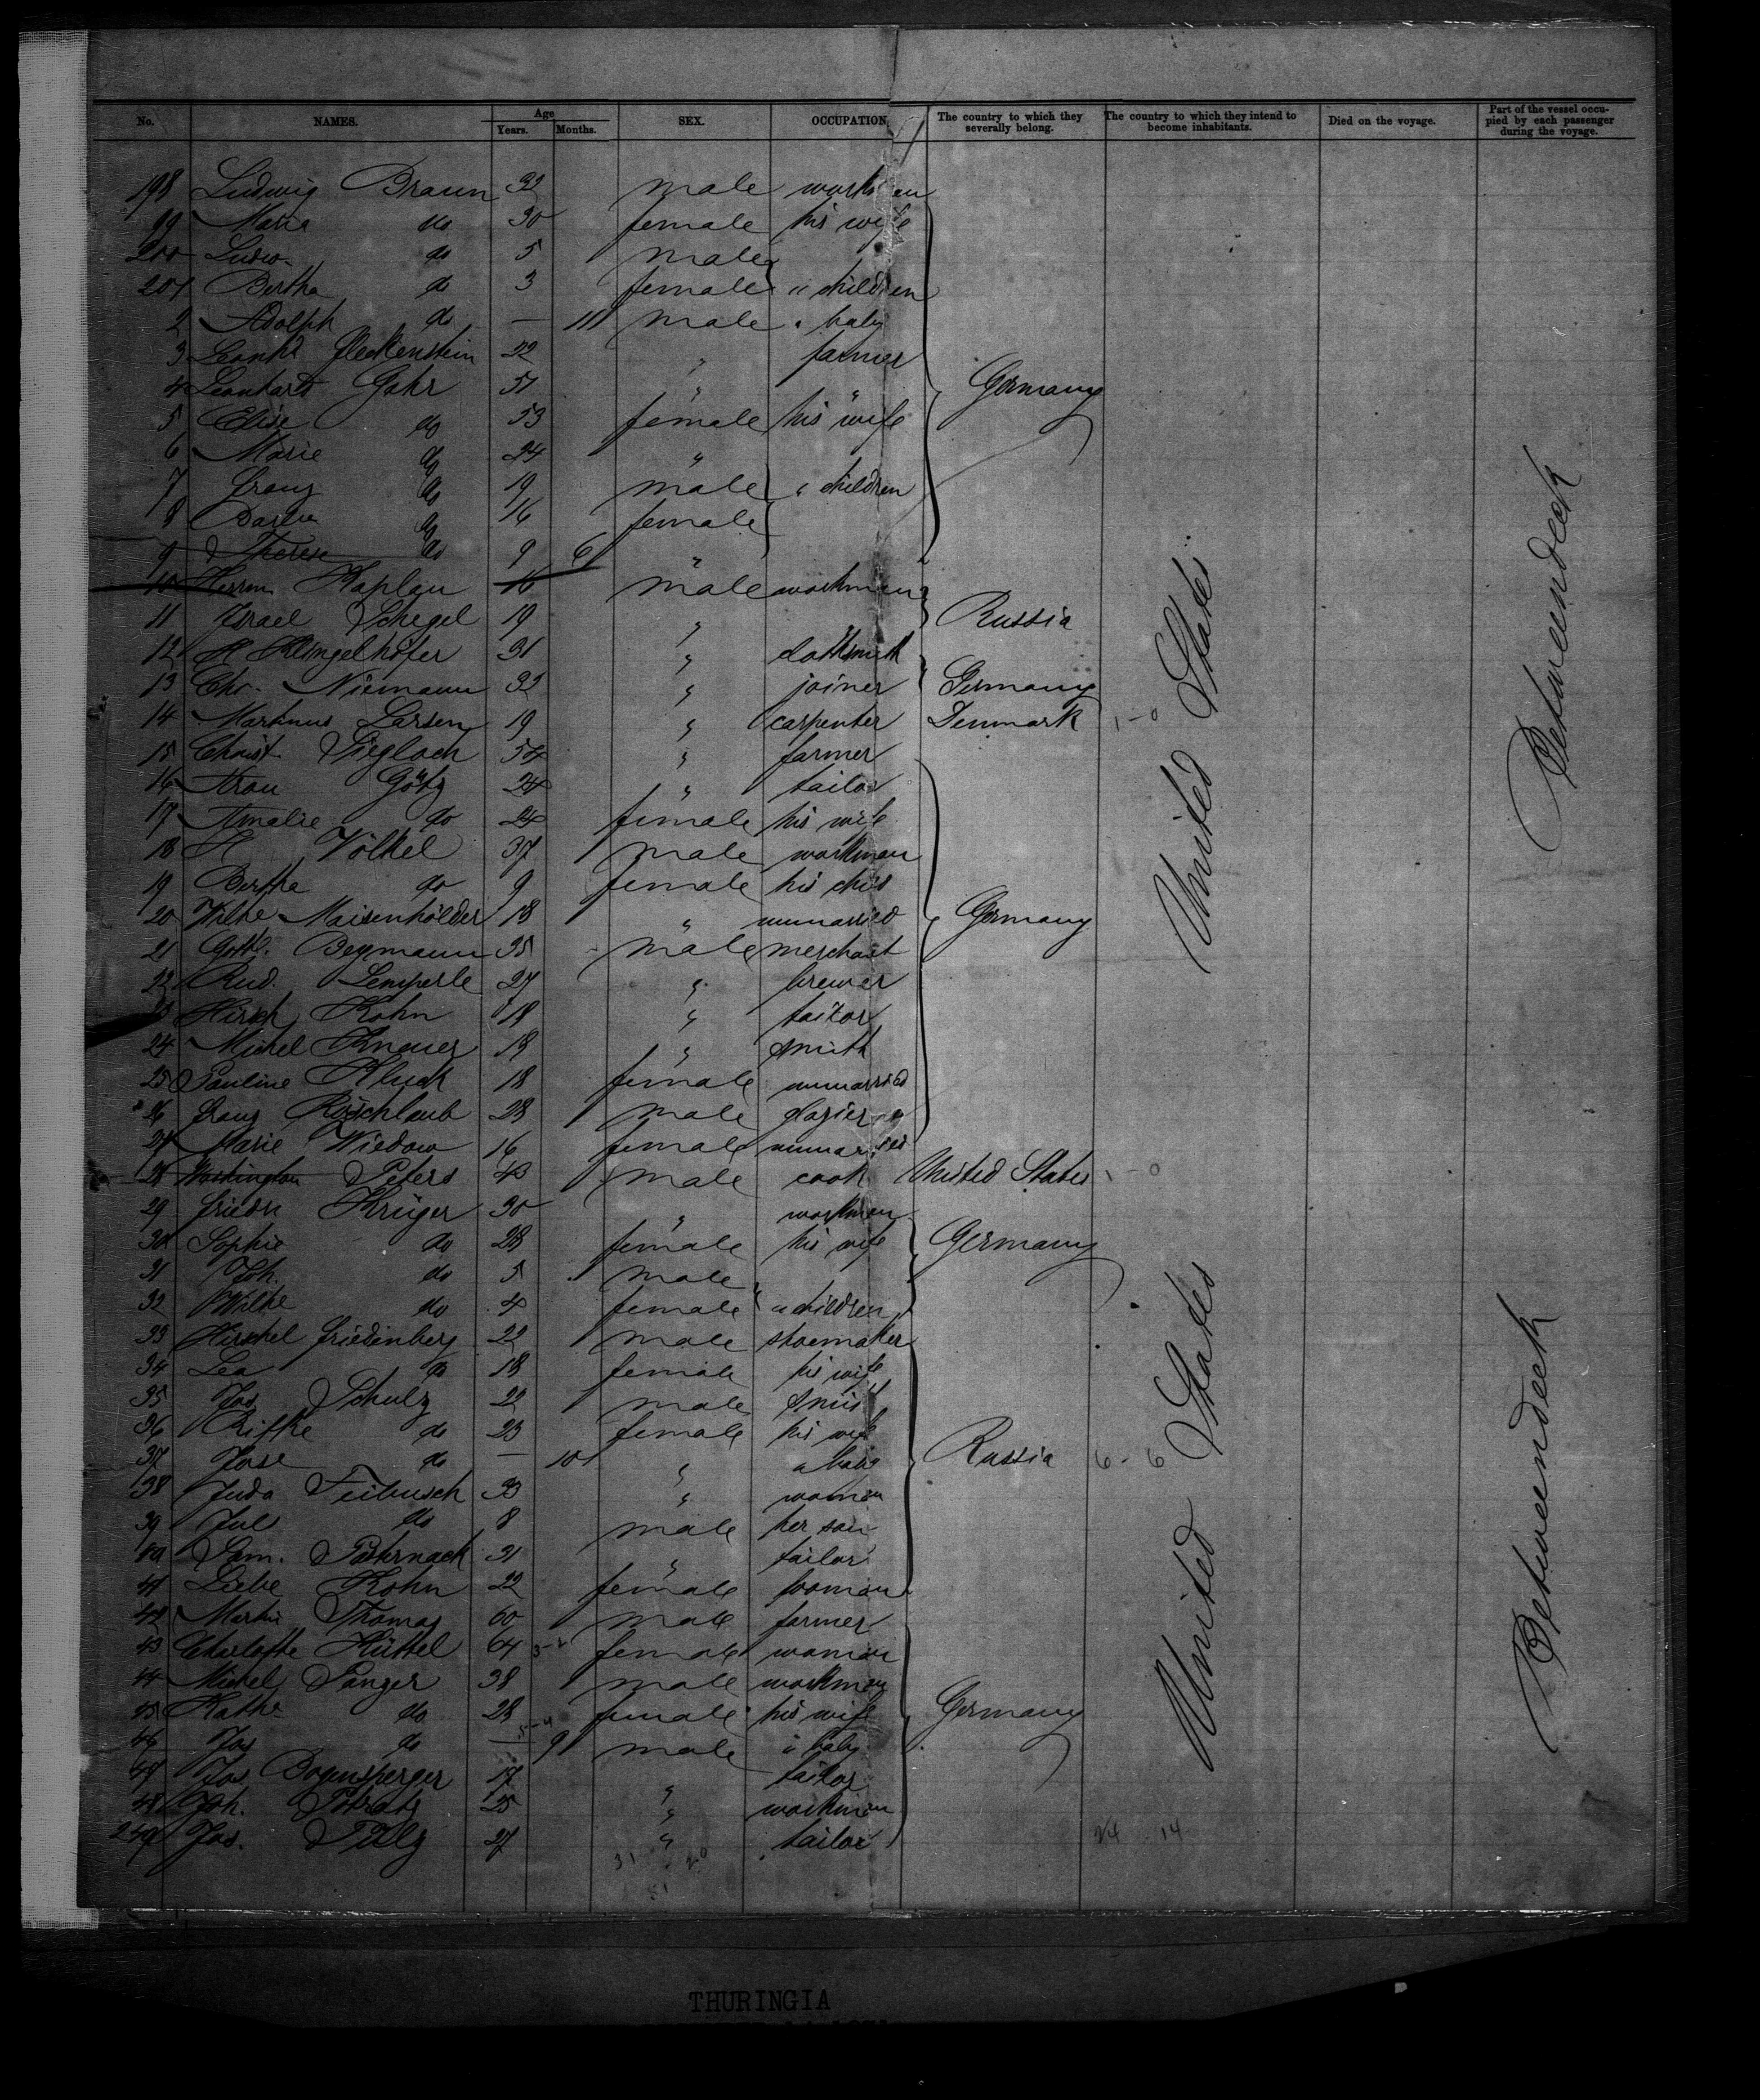 No. NAMES. Age Years. Months. SEX. OCCUPATION The country to which they severally belong. The country to which they intend to become inhabitants. Died on the voyage. Part of the vessel occupied by each passenger during the voyage.
198 Ludwig Braun 32 male workman
99 Maria do 30 female his wife
200 Ludw. do 5 male
201 Bertha do 3 female " children
2 Adolph do — 11 male " baby
3 Leonhd Fleckenstein 22 " farmer
4 Leonhard Gahr 51 " " Germany
5 Elise do 53 female his wife
6 Marie do 24 "
7 Franz do 19 male " children
8 do 16 female
9 Therese do 9 6 "
10 Herrm. Kaplan 16 male workman
11 Israel Schegel 19 " " Russia
12 H Klingelhöfer 31 "
13 Chr. Niemann 32 " joiner Germany
14 Martinus Larsen 19 " carpenter Denmark 1-0
15 Christ. Siegloch 54 " farmer
16 Götz 24 " tailor
17 Amalie do 24 female his wife
18 H Völkel 37 male workman
19 Bertha do 9 female his child
20 Wilhe Maisenhölder 18 " unmarried Germany
21 Gottl. Begmann 35 male merchant
22 Rud. Lemperle 27 " brewer
23 Hirsch Kohn 18 " tailor
24 Michel Knauer 18 " smith
25 Pauline Kluck 18 female unmarried
26 Franz Röschlaub 28 male glazier
27 Marie Wiedow 16 female unmarried
28 Washington Peters 43 male cook United States 1-0
29 Friedr Krüger 30 " workman
30 Sophie do 28 female his wife Germany
31 Joh. do 5 male
32 Wilhe do 4 female " children
33 Hirschel Friedenberg 22 male shoemaker
34 Lea do 18 female his wife
35 Jos Schulz 22 male smith
36 Rifke do 23 female his wife
37 do — 10 " a baby Russia 6-6
38 Juda Feibusch 33 " woman
39 Jul do 8 male her son
40 Sam. Pasternack 31 " tailor
41 Liebe Kohn 22 female woman
42 Martin Thomas 60 male farmer
43 Charlotte Hüttel 64 female woman
44 Michel Sanger 38 male workman
45 Kathe do 28 female his wife Germany
46 Jos do — 9 male " baby
47 Jos Bogensperger 17 " tailor
48 Joh. 25 " workman
249 Jos. 27 " tailor 24 14
31 20
51
United States
United States
Betweendeck
Betweendeck
THURINGIA